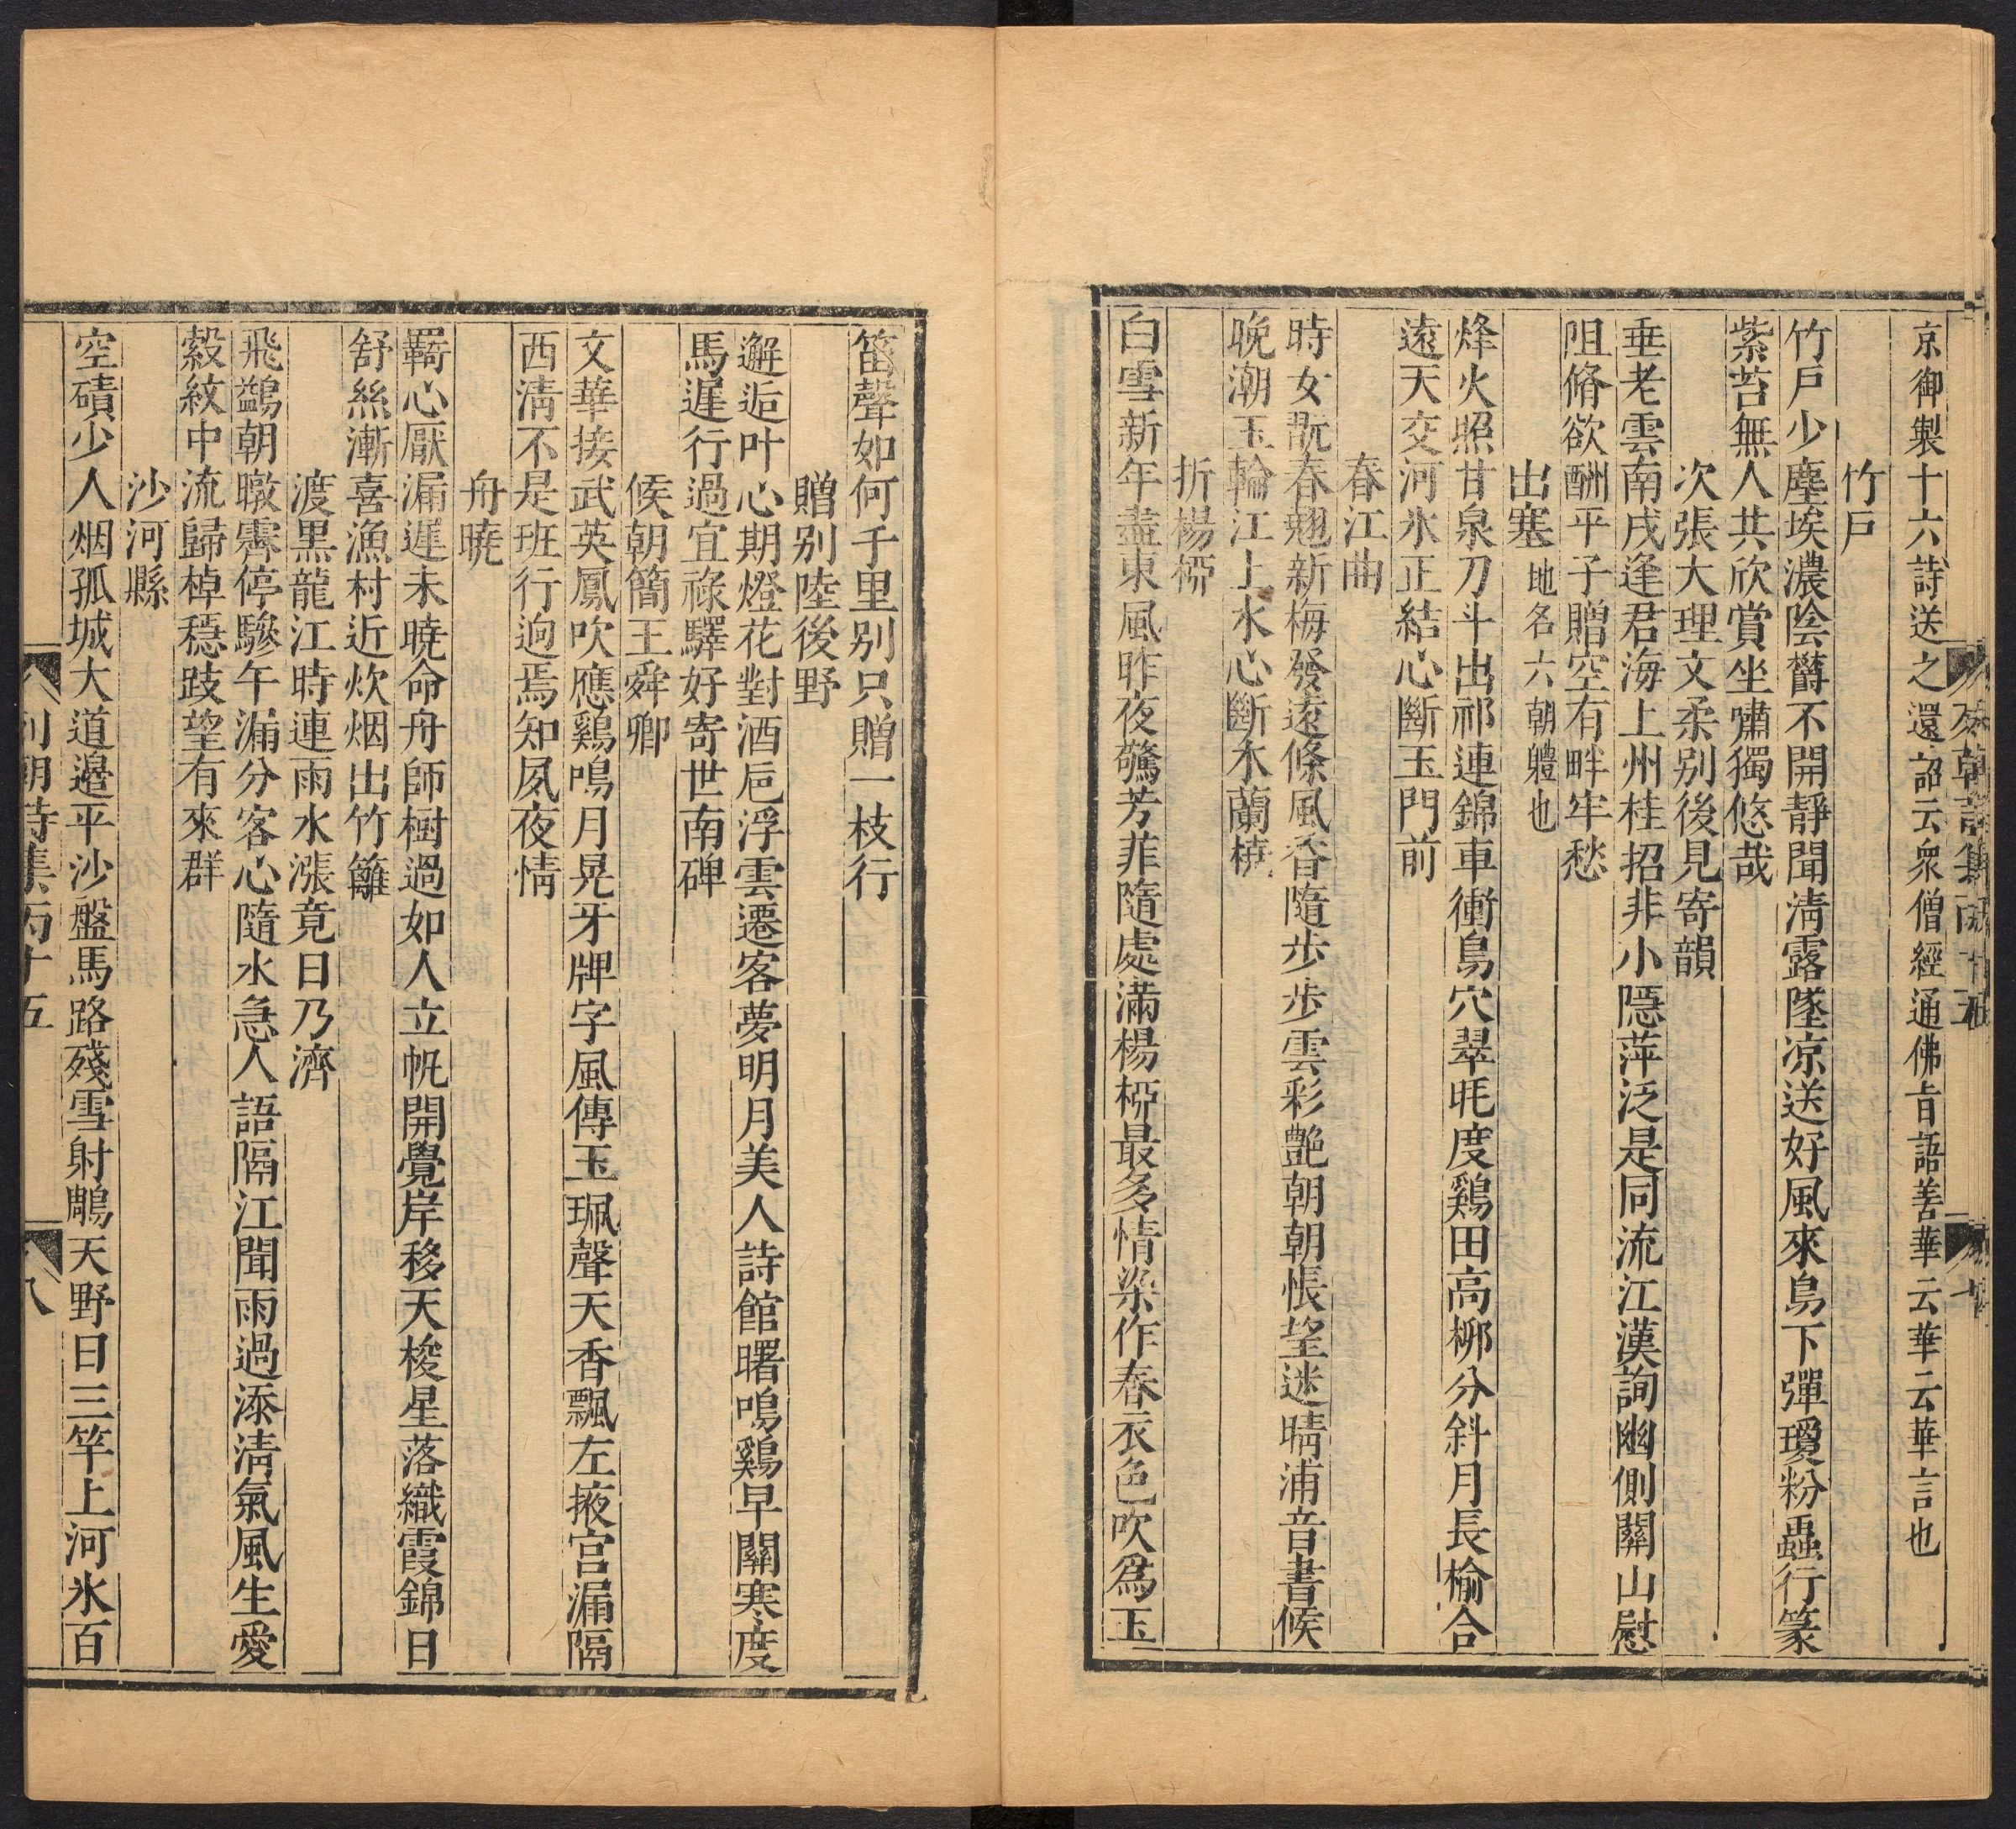 京御製十六詩送之還詔云衆僧經通佛旨語善華云華云華言也
竹戶
竹戶少塵埃濃陰欝不開靜聞淸露墜凉送好風來鳥下彈瓊粉蟲行篆
紫苔無人共欣賞坐嘯獨悠哉
次張大理文柔别後見寄韻
垂老雲南戌逢君海上州桂招非小隱萍泛是同流江漢詢幽側關山慰
阻脩欲酬平子贈空有畔牢愁
出塞地名六朝軆也
烽火照甘泉刀斗出祁連錦車衝鳥穴翠旄度鷄田高柳分斜月長榆合
遠天交河氷正結心斷玉門前
春江曲
時女翫春翹新梅發遠條風香隨步步雲彩艶朝朝悵望迷晴浦音書候
晚潮玉輪江上水心斷木蘭橈
折楊柳
白雪新年盡東風昨夜驚芳菲隨處滿楊柳最多情染作春衣色吹爲玉
笛聲如何千里别只贈一枝行
贈别陸後野
邂逅叶心期燈花對酒巵浮雲遷客夢明月美人詩館曙鳴鷄早關寒度
馬遲行過宜祿驛好寄世南碑
候朝簡王舜卿
文華接武英鳳吹應鷄鳴月晃牙牌字風傳玉珮聲天香飄左掖宫漏隔
西淸不是班行逈焉知夙夜情
舟曉
羇心厭漏遲未曉命舟師樹過如人立帆開覺岸移天梭星落織霞錦日
舒絲漸喜漁村近炊烟出竹籬
渡黑龍江時連雨水漲竟日乃濟
飛鷁朝暾霽停驂午漏分客心隨水急人語隔江聞雨過添淸氣風生愛
縠紋中流歸棹穩跂望有來群
沙河縣
空磧少人烟孤城大道邊平沙盤馬路殘雪射鵰天野日三竿上河氷百
列朝詩集丙十五
八